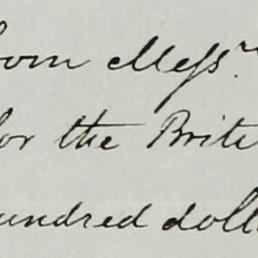 from Mess.rs
for the Brit
hundred doll